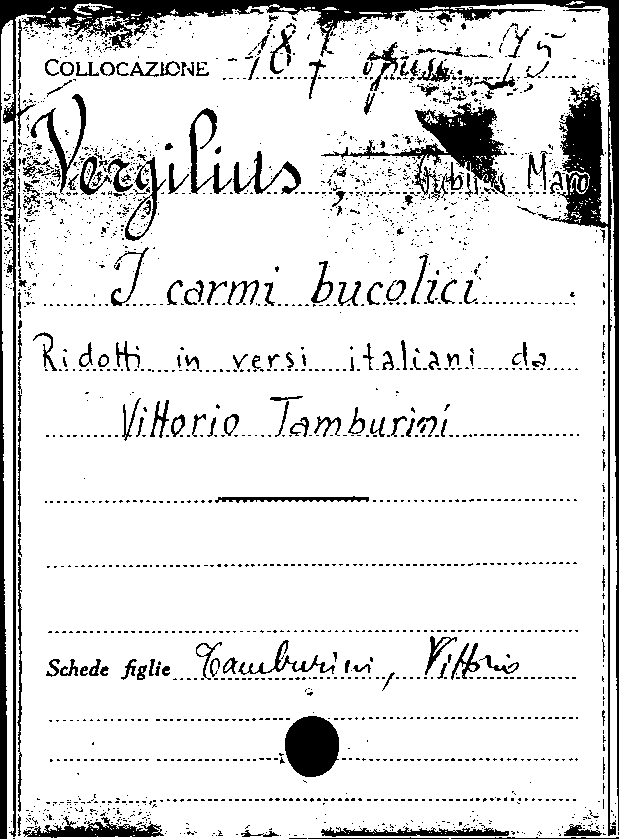 COLLOCAZIONE 187 opusc. 75
Vergilius, Publius Maro
I carmi bucolici
Ridotti in versi italiani da
Vittorio Tamburini
Schede figlie Tamburini, Vittorio